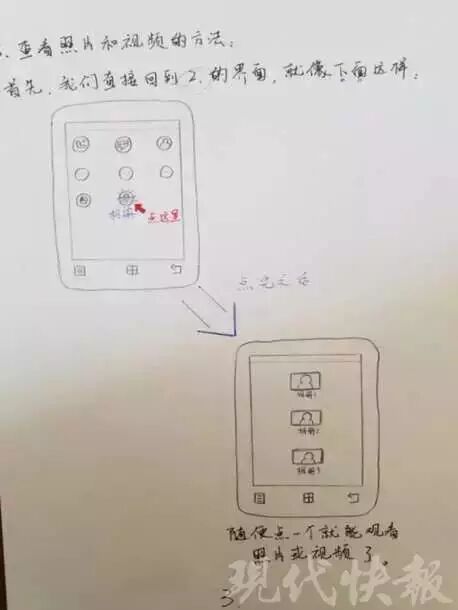 、查看照片和视频的方法:
首先,我们直接回到2.的界面,就像下面这样:
相册
点这里
点完之后
相册1
相册2
相册3
随便点一个就能观看
照片或视频了。
3
现代快報